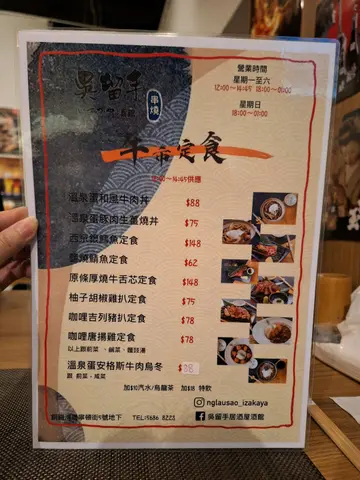 吳留手
串燒
營業時間
星期一至六
12:00～14:45 18:00～01:00
星期日
18:00～01:00
午市定食
12:00～14:45供應
溫泉蛋和風牛肉丼 $88
溫泉蛋豚肉生薑燒丼 $75
西京銀鱈魚定食 $148
鹽燒鯖魚定食 $62
原條厚燒牛舌芯定食 $148
柚子胡椒雞扒定食 $75
咖哩吉列豬扒定食 $78
咖哩唐揚雞定食 $78
以上跟前菜、鹹菜、麵豉湯
溫泉蛋安格斯牛肉烏冬 $88
跟 前菜、咸菜
加$10汽水/烏龍茶 加$18 特飲
nglausao_izakaya
吳留手居酒屋酒館
號地下 TEL:5686 8223